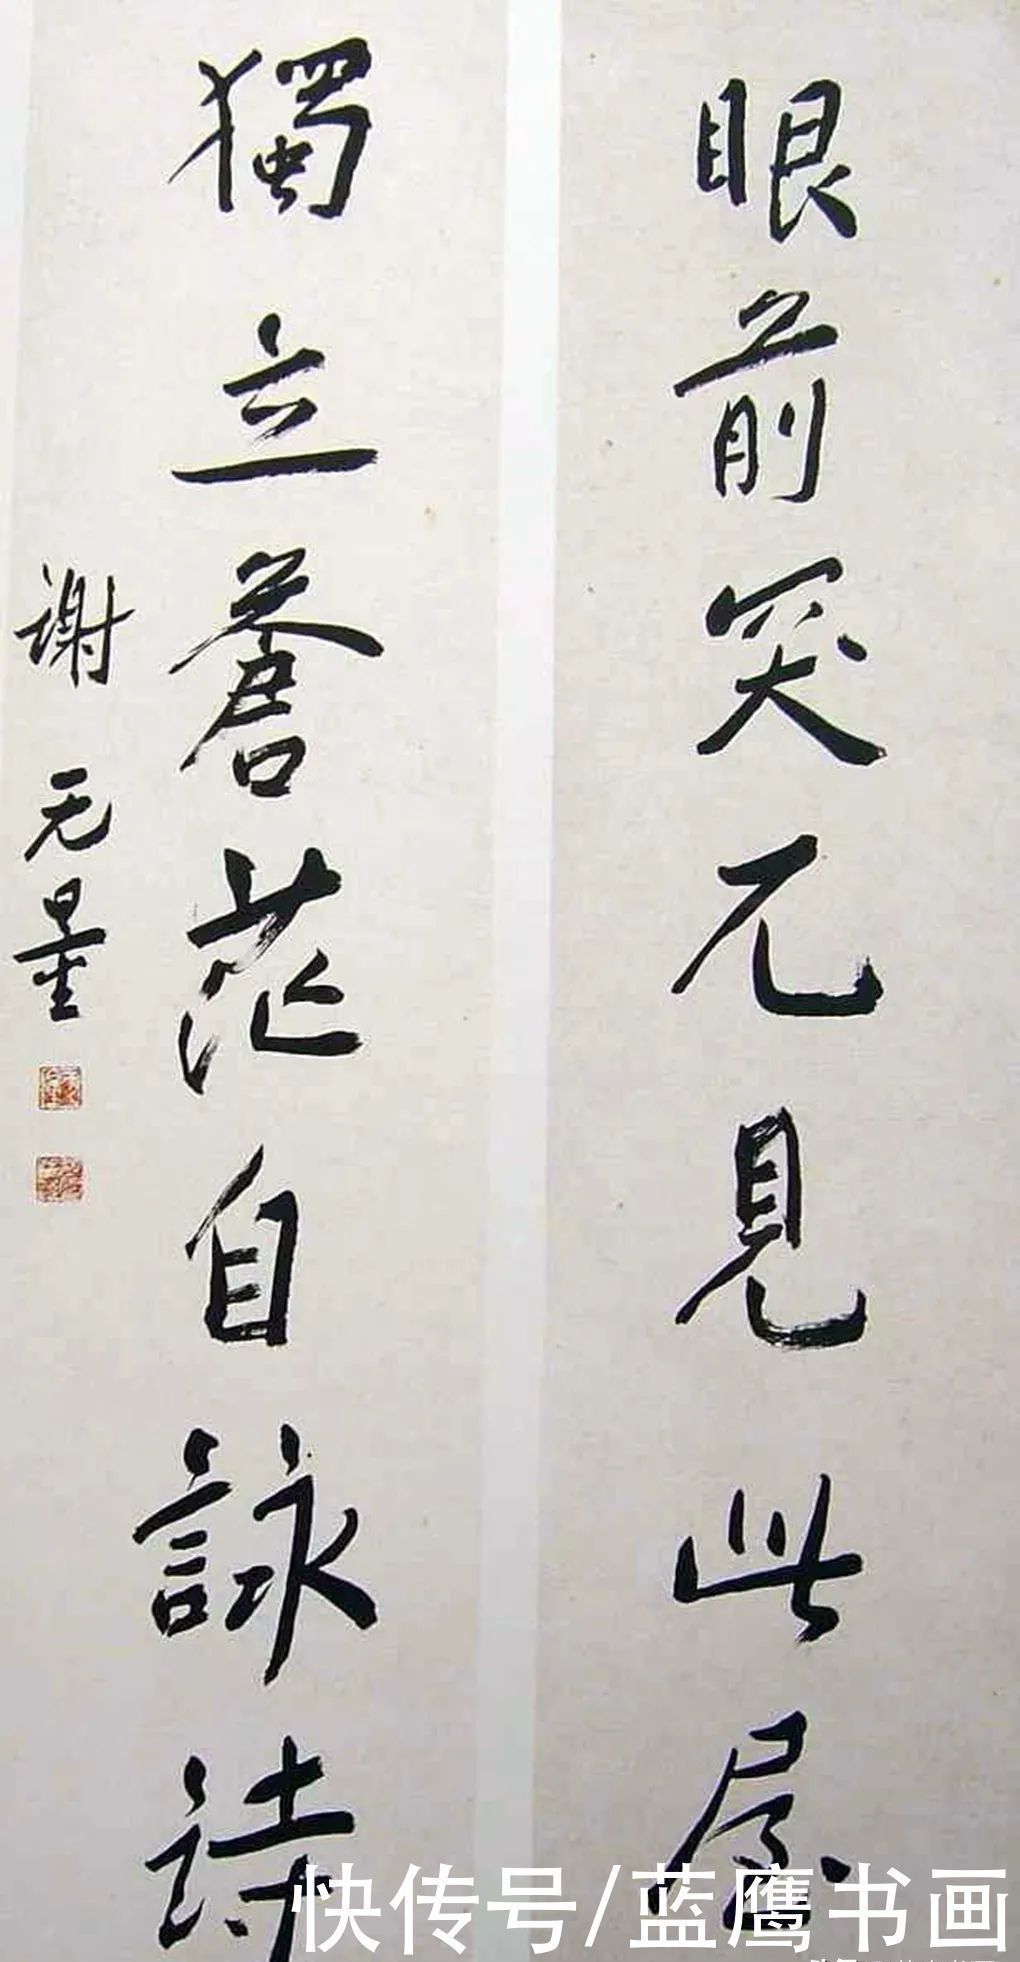 眼前突兀見此屋
獨立蒼茫自詠詩
谢无量
快传号/蓝鹰书画